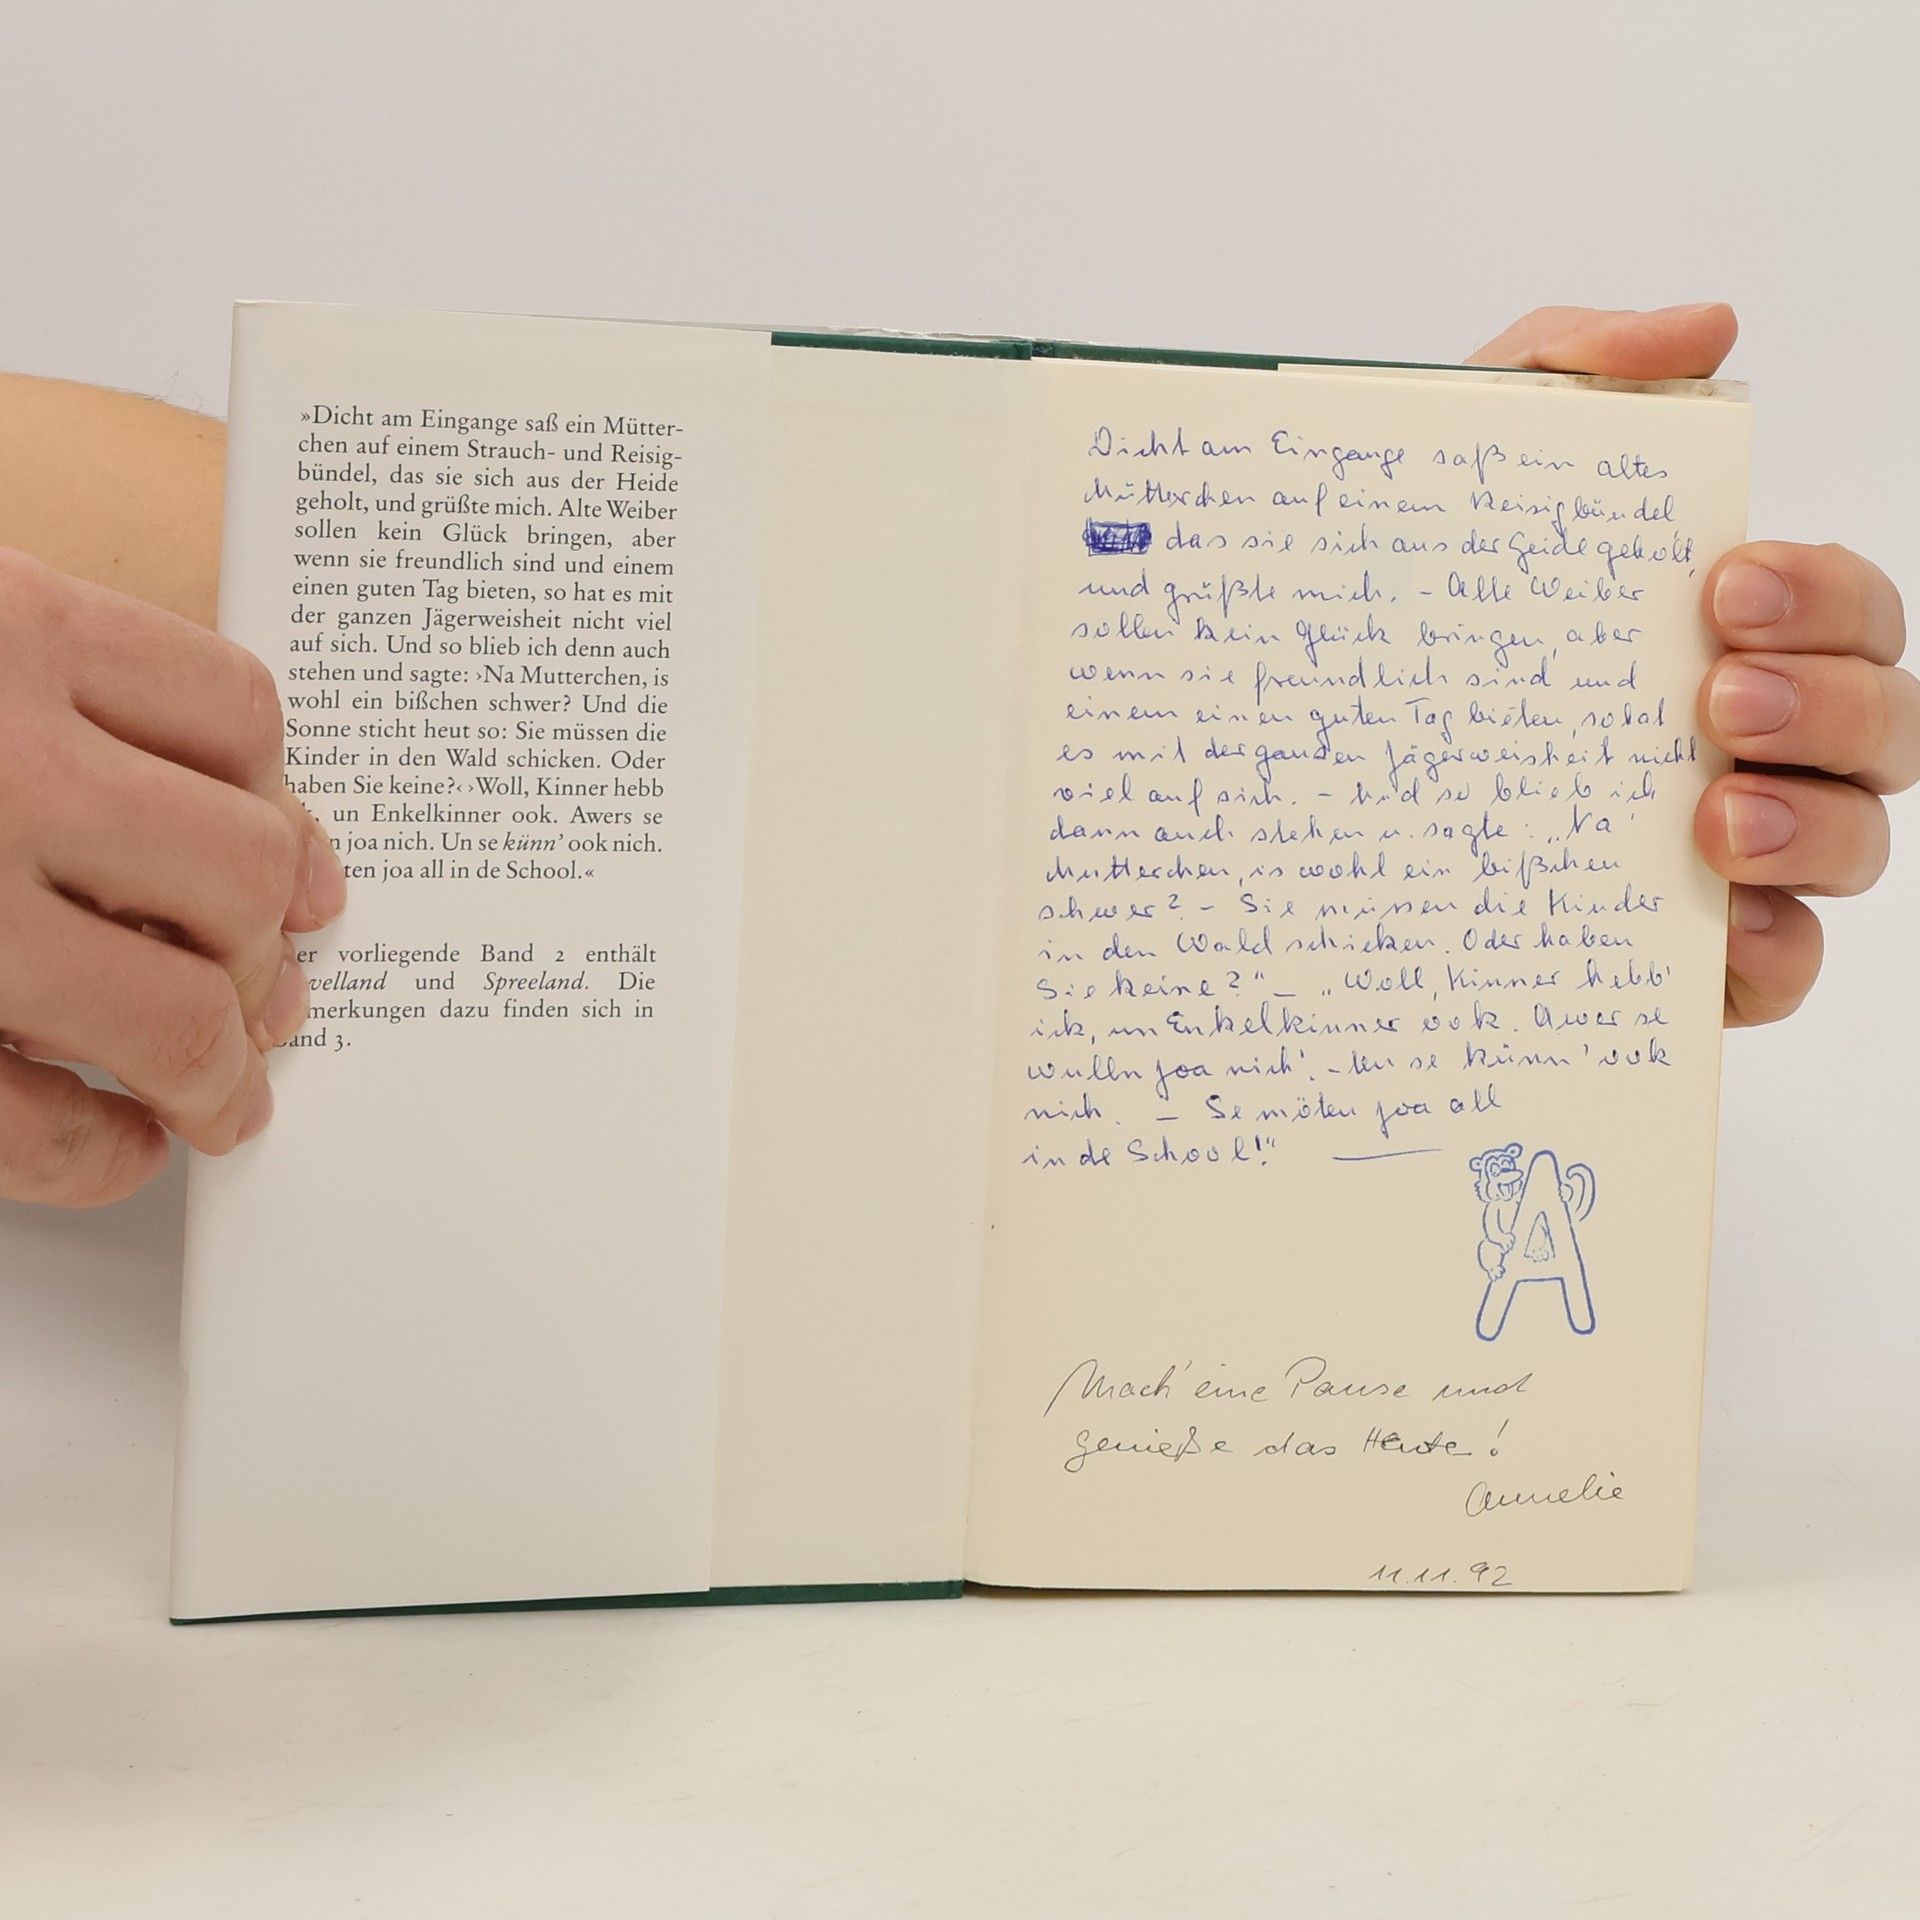 »Dicht am Eingange saß ein Mütter-
chen auf einem Strauch- und Reisig-
bündel, das sie sich aus der Heide
geholt, und grüßte mich. Alte Weiber
sollen kein Glück bringen, aber
wenn sie freundlich sind und einem
einen guten Tag bieten, so hat es mit
der ganzen Jägerweisheit nicht viel
auf sich. Und so blieb ich denn auch
stehen und sagte: ›Na Mutterchen, is
wohl ein bißchen schwer? Und die
Sonne sticht heut so: Sie müssen die
Kinder in den Wald schicken. Oder
haben Sie keine?‹ ›Woll, Kinner hebb
un Enkelkinner ook. Awers se
joa nich. Un se künn' ook nich.
joa all in de School.«
vorliegende Band 2 enthält
und Spreeland. Die
dazu finden sich in
3.
Dicht am Eingange saß ein altes
Mütterchen auf einem Reisigbündel
das sie sich aus der Heide geholt,
und grüßte mich. - Alte Weiber
sollen kein Glück bringen, aber
wenn sie freundlich sind und
einem einen guten Tag bieten, so hat
es mit der ganzen Jägerweisheit nicht
viel auf sich. - Und so blieb ich
dann auch stehen u. sagte: „Na
Mutterchen, is wohl ein bißchen
schwer? - Sie müssen die Kinder
in den Wald schicken. Oder haben
Sie keine?" - „Woll, Kinner hebb'
ick, un Enkelkinner ook. Awer se
wulln joa nich'. - Un se künn' ook
nich. - Se möten joa all
in de School!"
A
Mach' eine Pause und
genieße das Heute!
Annelie
11.11.92